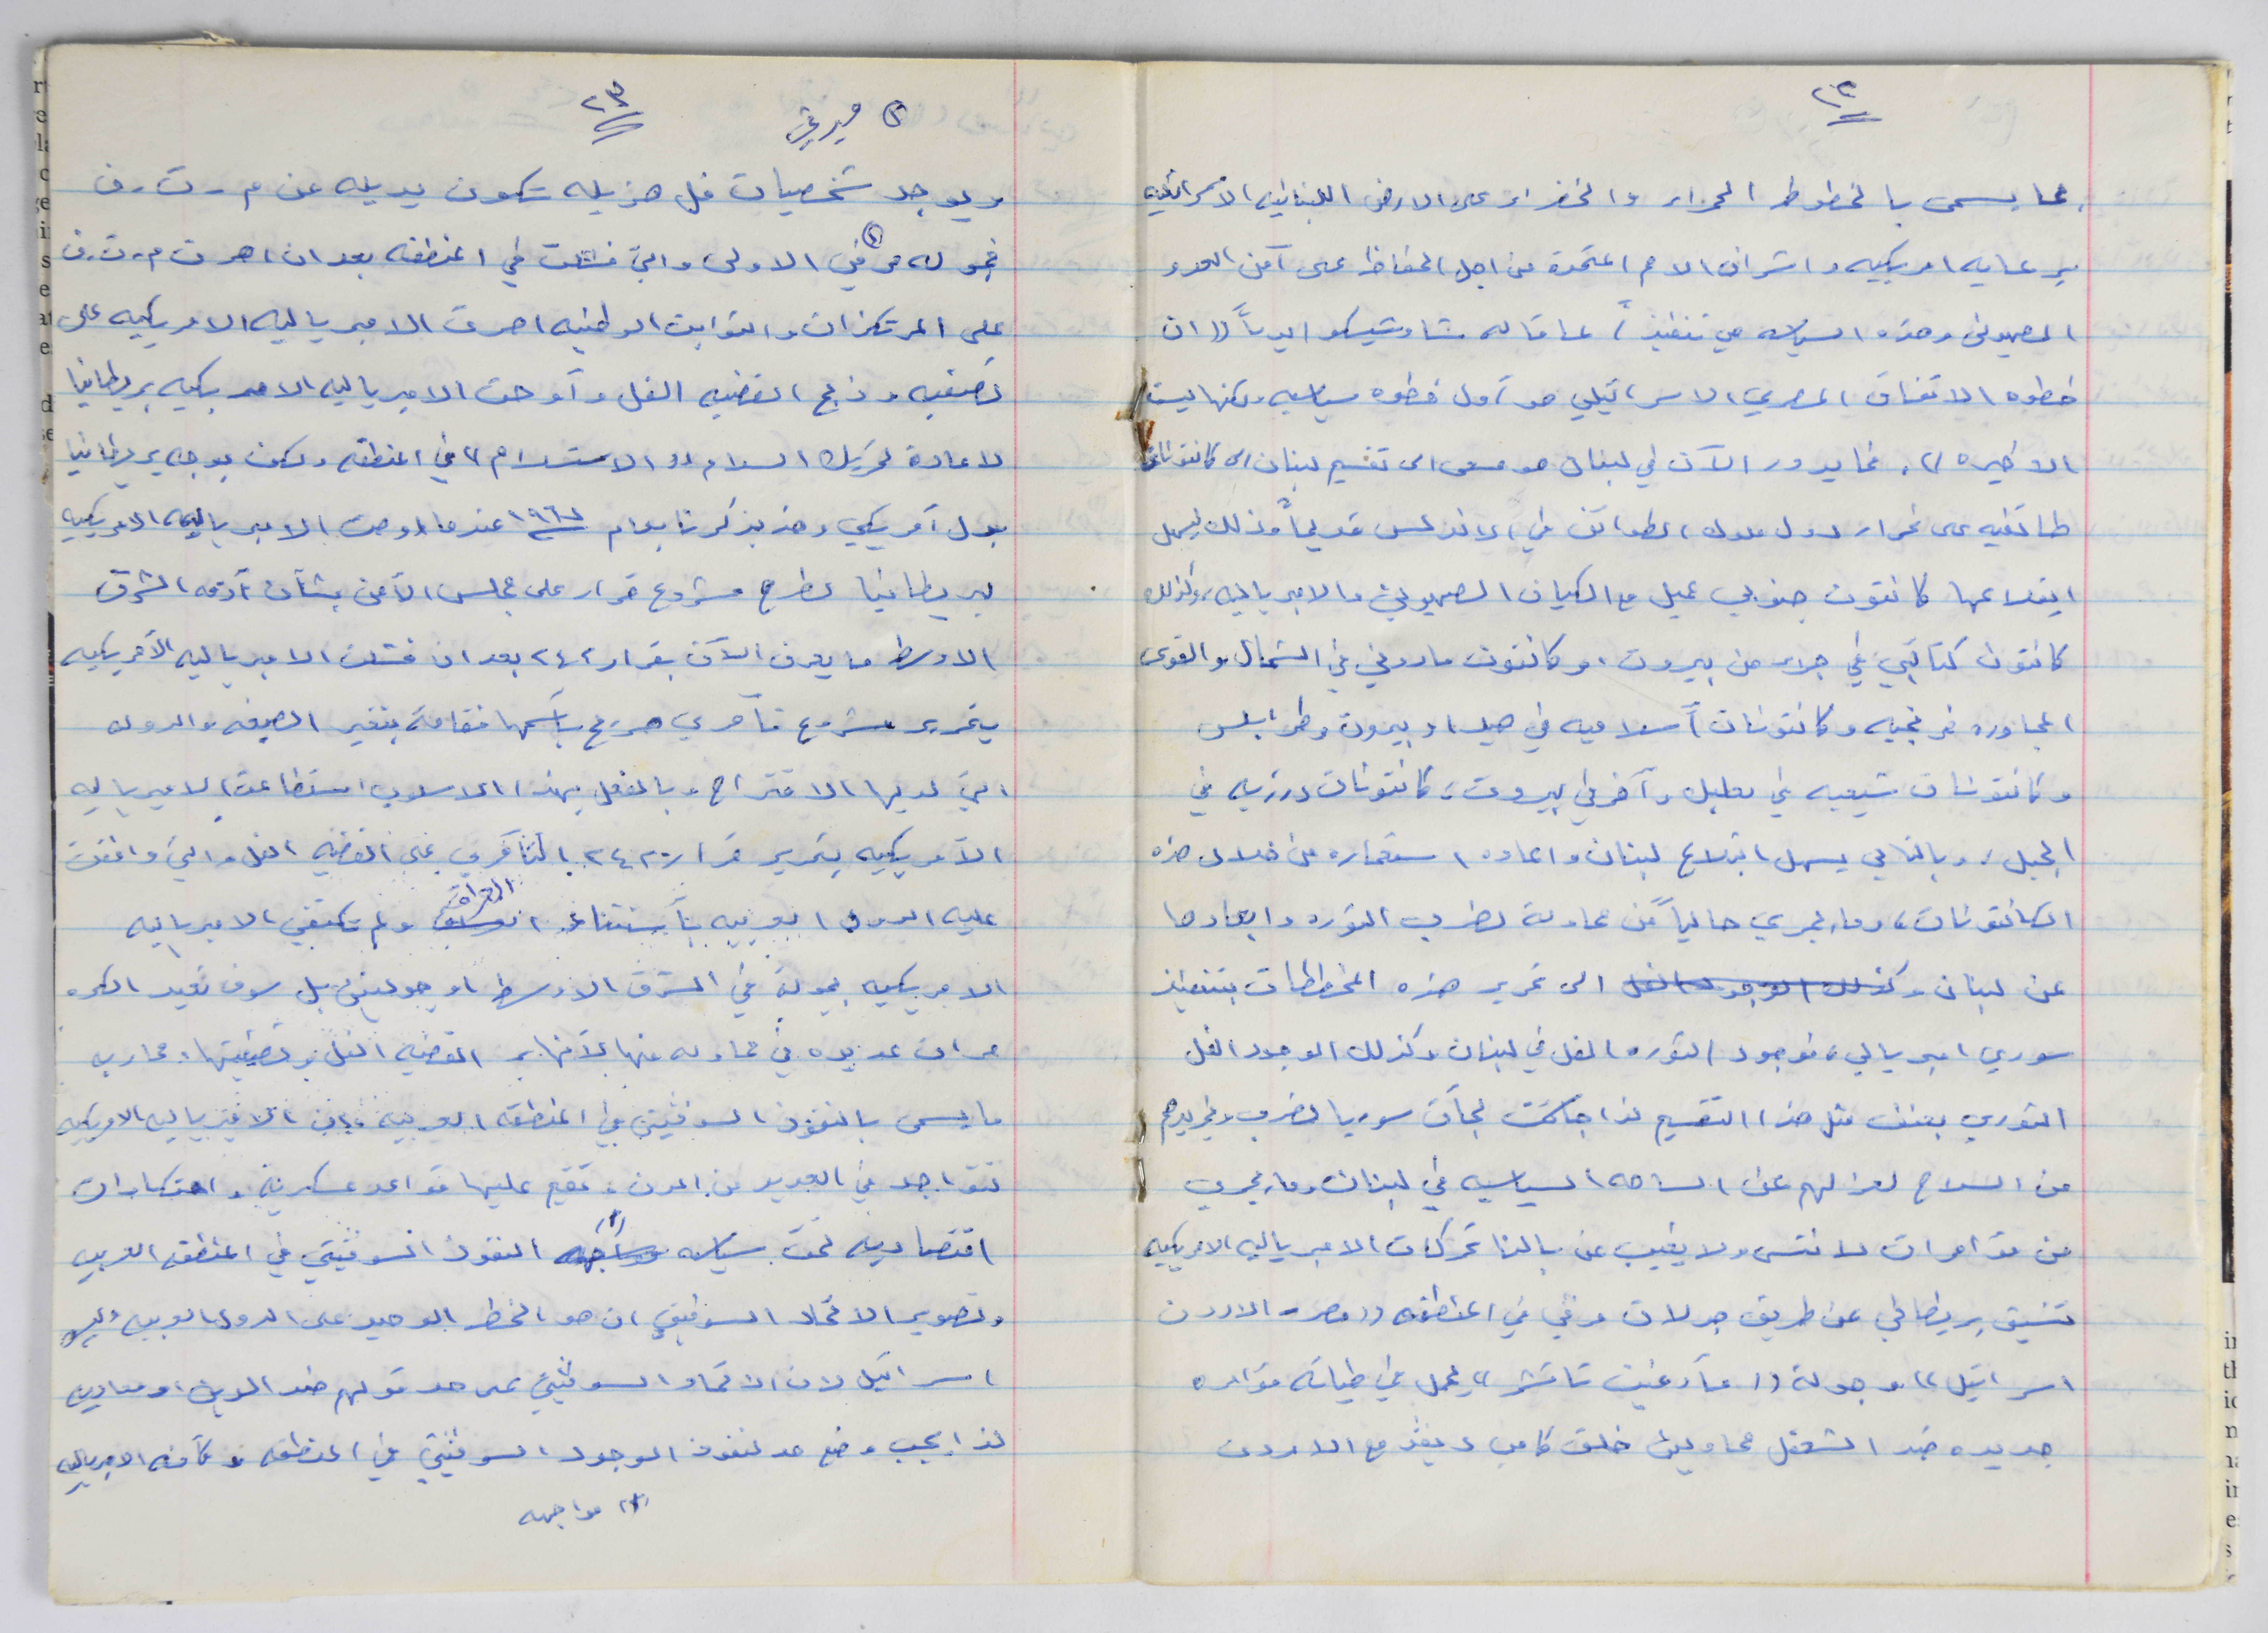 ٢٢
ما يسمى بالخطوط الحمراء والخضراء على الارض اللبنانيه الاسرائيليه
برعايه امريكيه واشراف الامم المتحدة من اجل الحفاظ على آمن العدو
الصهيوني وهذه السياسه هي تنفيذاً لما قاله تشاوشيسكو ايدياً (( ان
خطوه الاتفاق المصري الاسرائيلي هو أول خطوه سياسيه ولكنها ليست
الاخيره )). فما يدور الآن في لبنان هو سعى الى تقسيم لبنان الى كانتونات
طائفيه على غرار دول ملوك الطوائف في الاندلس قديماً وذلك ليسهل
ابتلاعها كانتون جنوبي عميل مع الكيان الصهيوني والامبرياليه، وكذلك
كانتون كتائبي في جزء من بيروت، وكانتون ماروني في الشمال والقوى
المجاوره فرنجيه وكانتونات أسلاميه في صيدا وبيروت وطرابلس
وكانتونات شيعيه في بعلبك وآخر في بيروت، كانتونات درزيه في
الجبل، وبالتالي يسهل ابتلاع لبنان واعاده استعماره من خلال هذه
الكانتونات، وما يجري حالياً من محاولة لضرب الثوره وابعادها
عن لبنان وكذلك الوجود الفل الى تمرير هذه المخططات بتنفيذ
سوري امبريالي، فوجود الثوره الفل في لبنان وكذلك الوجود الفل
الثوري بعنف مثل هذا التقسيم لذا لجأت سوريا لضرب وتجريدهم
من السلاح لعزلهم عن الساحه السياسيه في لبنان وما يجري
من مؤامرات لا ننسى ولا يغيب عن بالنا تحركات الامبرياليه الامريكيه
تنسيق بريطاني عن طريق جولات مرفي في المنطقه (( مصر - الاردن
اسرائيل )) وجولة (( مآرغريت تاتشر )) يحمل في طياته مؤامره
جديده ضد الشعفل محاولين خلق كامب ديفد مع الاردن
٢٣
② ميرفي
ويوجد شخصيات فل هزيله ستكون بديله عن م.ت.ف
فجوله مرفي② الاولى والتي فشلت في المنطقه بعد ان اصرت م.ت.ف
على المرتكزات والثوابت الوطنيه اصرت الامبرياليه الامريكيه على
تصفيه وذبح القضيه الفل وأوحت الامبرياليه الامريكيه بريطانيا
لاعادة تحريك السلام (( الاستسلام )) في المنطقه ولكن بوجه بريطانيا
بدل آمريكي وهذا يذكرنا بعام ١٩٦٧ عندما اوصت الامبرياليه الامريكيه
لبريطانيا لطرح مشروع قرار على مجلس الآمن بشأن آزمه الشرق
الاوسط ما يعرف الآن بقرار ٢٤٢ بعد ان فشلت الامبرياليه الآمريكيه
بتمرير مشروع تآمري صريح بآسمها فقامت بتغير الصيغه والدوله
التي لديها الاقتراح وبالفعل بهذا الاسلوب استطاعت الامبرياليه
الآمريكيه بتمرير قرار ٢٤٢ التآمري على القضيه الفل والتي وافقت
عليه الدول العربيه بآستثناء العراق ولم تكتفي الامبرياليه
الامريكيه بجولة في الشرق الاوسط او جولتين بل سوف تعيد الكره
مرات عديده في محاوله منها لآنهاء القضيه الفل وتصفيتها، محاربه
ما يسمى بالنفوذ السوفيتي في المنطقه العربيه، فإن الامبرياليه الامريكيه
تتواجد في العديد من المدن وتقيم عليها قواعد عسكريه واحتكارات
اقتصاديه تحت سياسه مواجهه (١) النفوذ السوفيتي في المنطقه العربيه
وتصوير الاتحاد السوفيتي ان هو الخطر الوحيد على الدول العربيه وليس
اسرائيل لان الاتحاد السوفيتي على حد قولهم ضد الدين او معاديه
لذا يجب وضع حد لنفوذ الوجود السوفيتي في المنطقه وكآنه الامبرياليه
(١) مواجهه